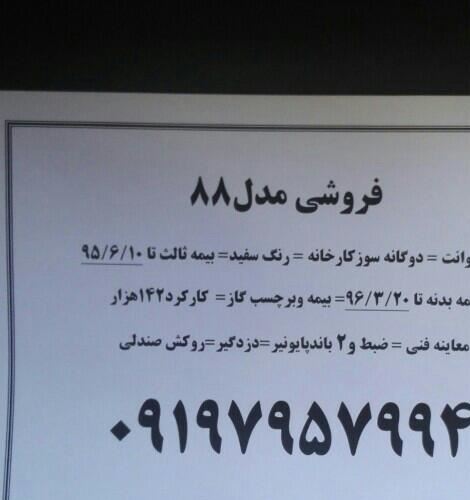 فروشی مدل ۸۸
وانت = دوگانه سوز کارخانه = رنگ سفید= بیمه ثالث تا ۹۵/۶/۱۰
مه بدنه تا ۹۶/۳/۲۰= بیمه وبرچسب گاز= کارکرد۱۴۲هزار
معاینه فنی = ضبط و۲ باندپایونیر=دزدگیر=روکش صندلی
۰۹۱۹۷۹۵۷۹۹۴